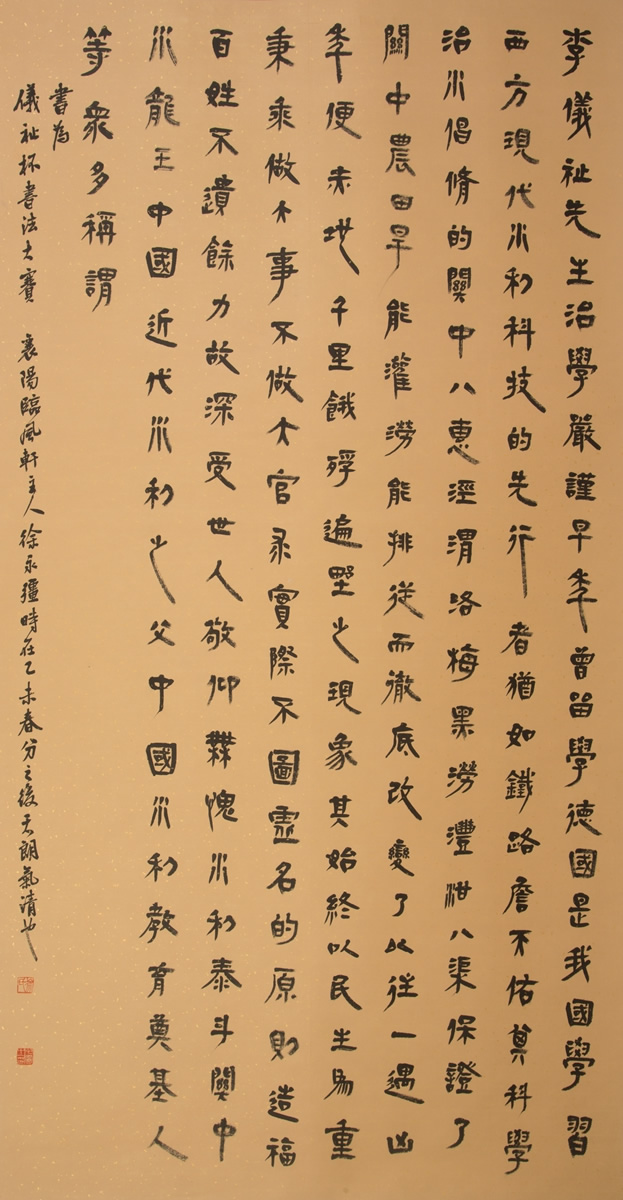 李儀祉先生治學嚴謹早年曾留學德國是我國學習
西方現代水利科技的先行者猶如鐵路詹天佑其科學
治水倡脩的關中八惠涇渭洛梅黑澇灃泔八渠保證了
關中農田旱能灌澇能排從而徹底改變了以往一遇凶
年便赤地千里餓殍遍野之現象其始終以民生為重
秉乘做大事不做大官求實際不圖虛名的原則造福
百姓不遺餘力故深受世人敬仰無愧水利泰斗關中
水龍王中國近代水利之父中國水利教育奠基人
等衆多稱謂
書為
儀祉杯書法大賽 襄陽臨風軒主人徐永疆時在乙未春分之後天朗氣清也